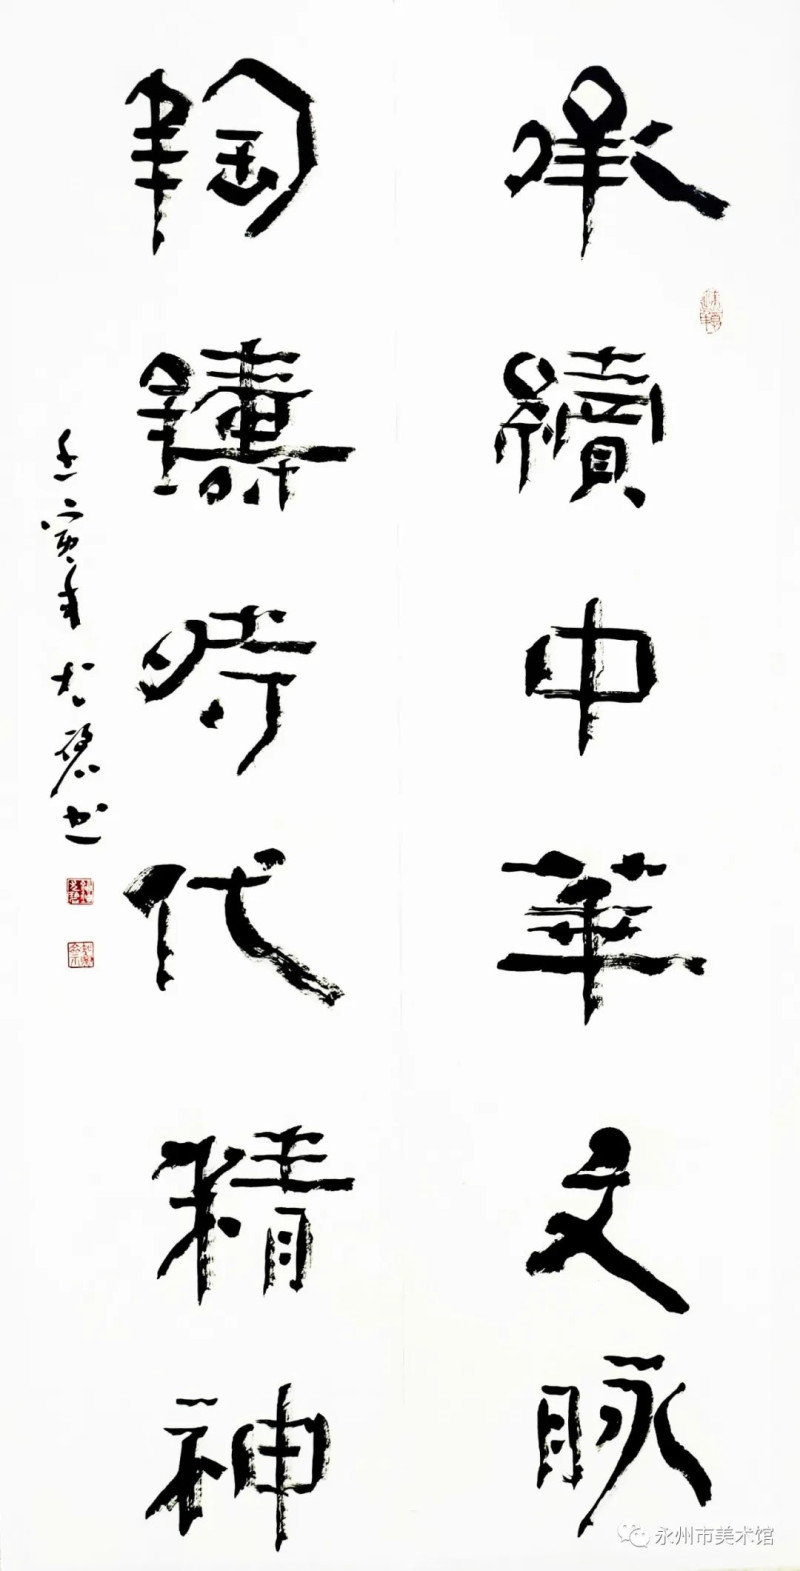 承續中華文脉
陶鑄時代精神
壬寅年
书
永州市美术馆